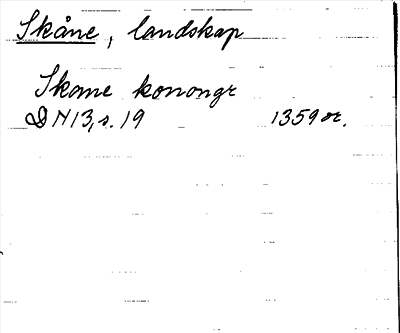 Skåne, landskap
Skane konongr
DN13, s. 19 1359 or.